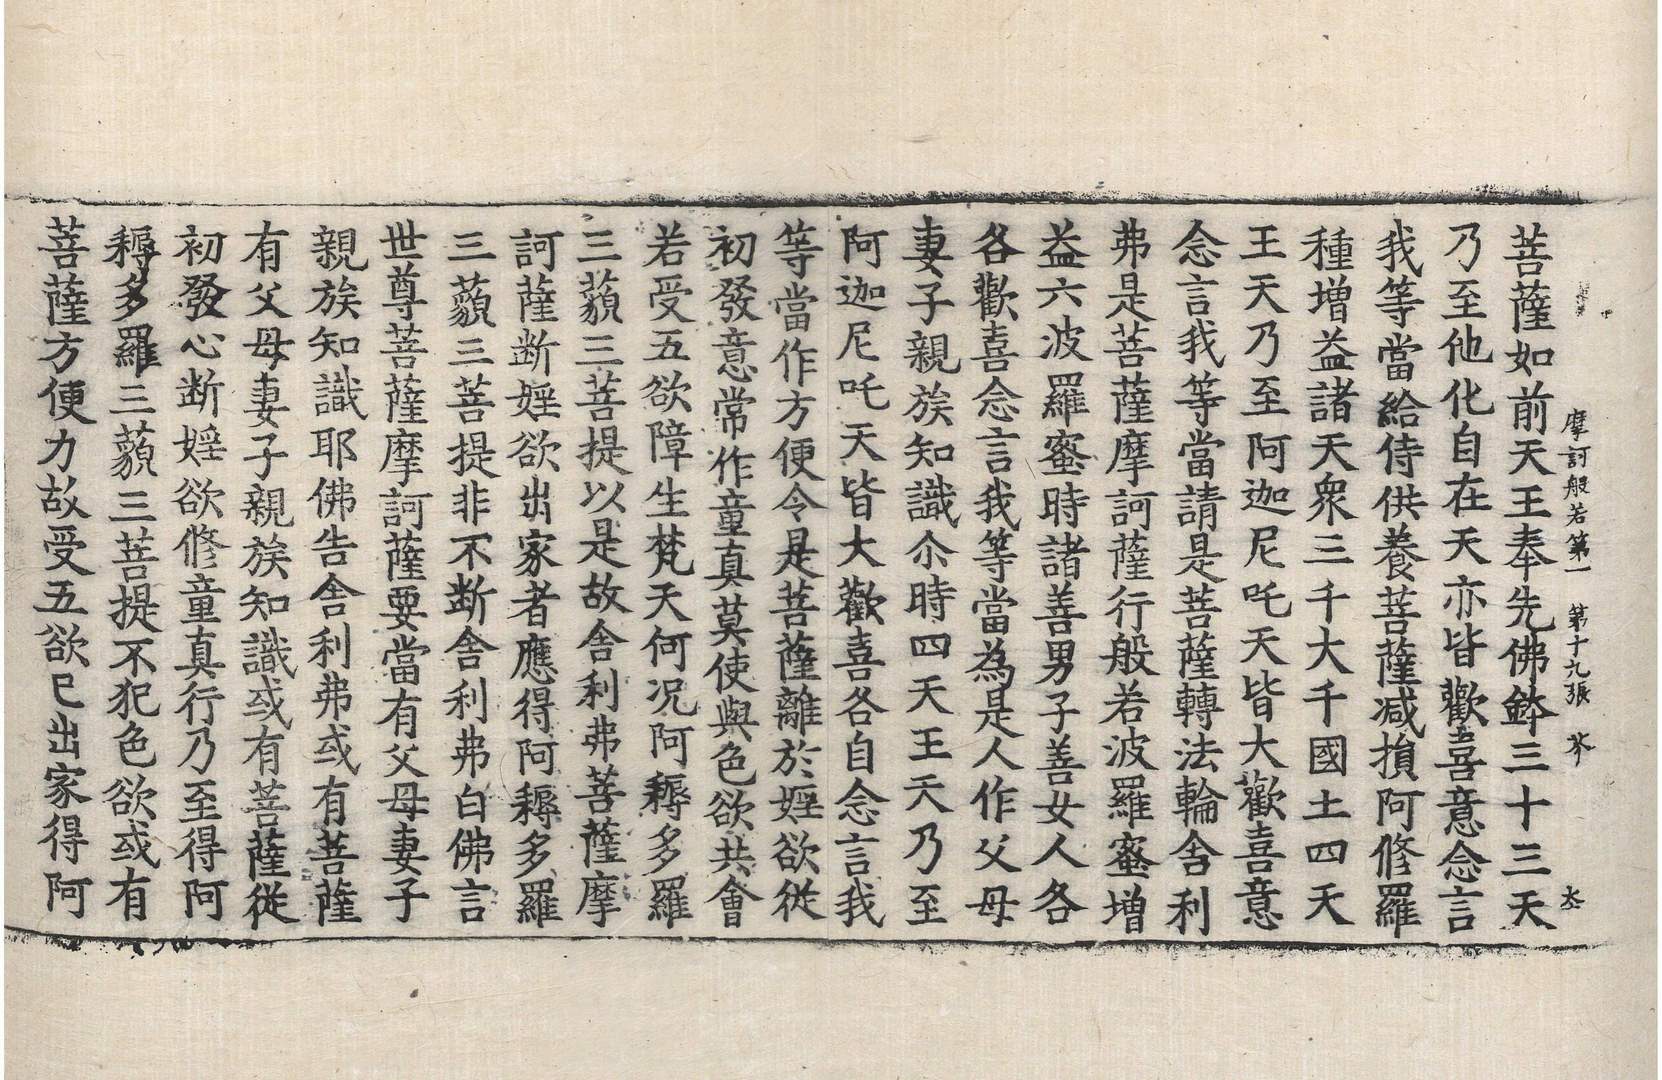 摩訶般若第一 第十九張 芥
菩薩如前天王奉先佛鉢三十三天
乃至他化自在天亦皆歡喜意念言
我等當給侍供養菩薩减損阿修羅
種增益諸天衆三千大千國土四天
王天乃至阿迦尼吒天皆大歡喜意
念言我等當請是菩薩轉法輪舍利
弗是菩薩摩訶薩行般若波羅蜜增
益六波羅蜜時諸善男子善女人各
各歡喜念言我等當為是人作父母
妻子親族知識尒時四天王天乃至
阿迦尼吒天皆大歡喜各自念言我
等當作方便令是菩薩離於婬欲従
初發意常作童真莫使與色欲共會
若受五欲障生梵天何况阿耨多羅
三藐三菩提以是故舍利弗菩薩摩
訶薩断婬欲出家者應得阿耨多羅
三藐三菩提非不断舍利弗白佛言
世尊菩薩摩訶薩要當有父母妻子
親族知識耶佛告舍利弗或有菩薩
有父母妻子親族知識或有菩薩従
初發心断婬欲修童真行乃至得阿
耨多羅三藐三菩提不犯色欲或有
菩薩方便力故受五欲已出家得阿